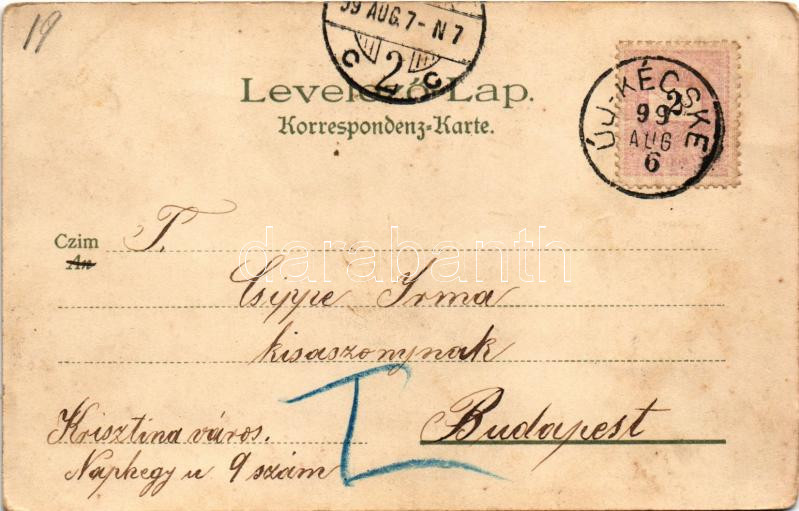 19
99 AUG. 7 - N 7
2
C C
Levelező-Lap.
Korrespondenz-Karte.
ÚJ-KÉCSKE
2
99
AUG
6
Czim T.
An
darabanth
Csippe Irma
kisaszonynak
Krisztina város. Budapest
Naphegy u 9 szám